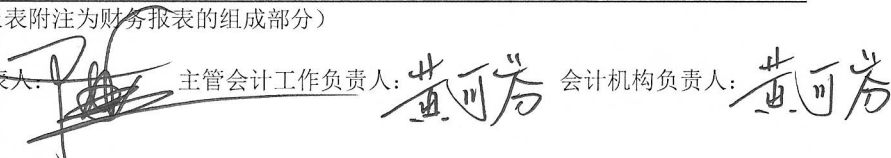 表附注为财务报表的组成部分）
表人： 主管会计工作负责人：黄可芬 会计机构负责人：黄可芬